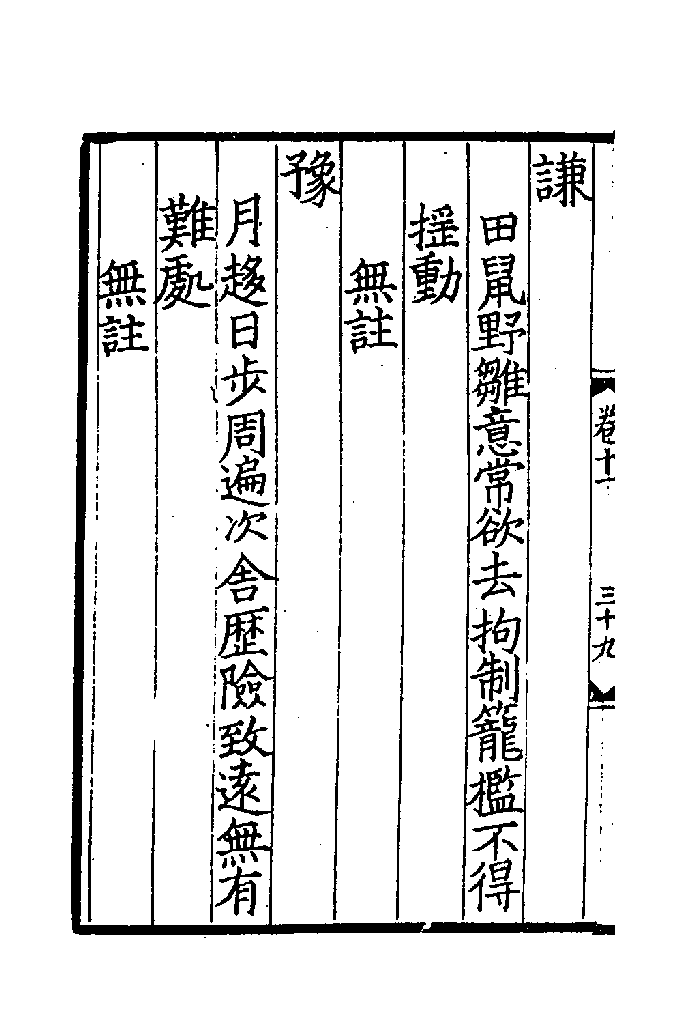 卷十一 三十九
謙
田鼠野雛意常欲去拘制籠檻不得
揺動
無註
豫
月趍日步周遍次舍歴險致逺無有
難處
無註